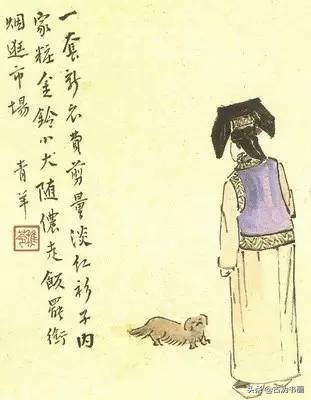 一套新衣费剪量淡红衫子内
家妆金铃小犬随侬走饭罢衔
烟逛市场
青羊
头条@古历书画